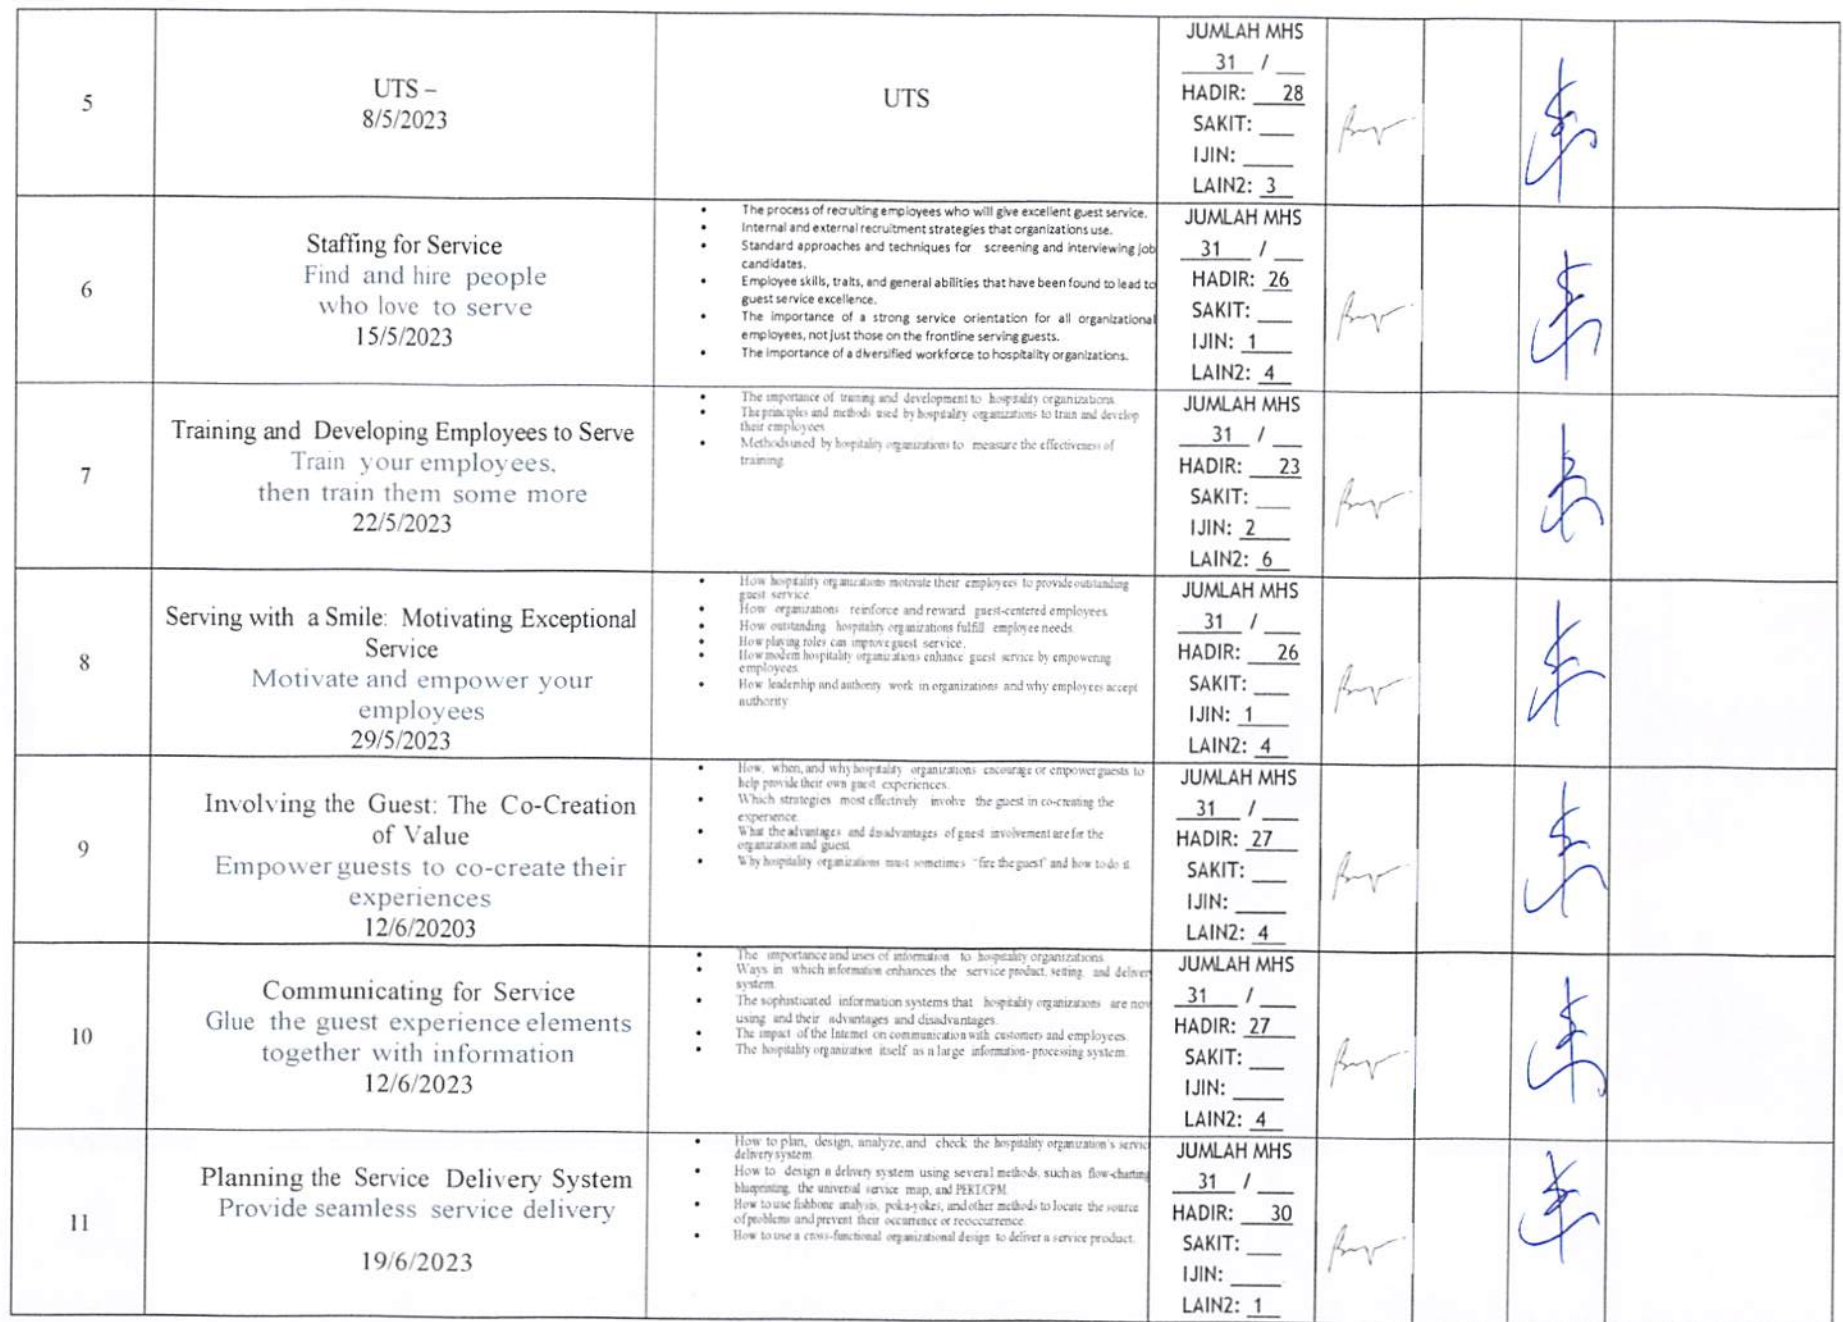 5
UTS –
8/5/2023
UTS
JUMLAH MHS
31 / __
HADIR: 28
SAKIT: ___
IJIN: ____
LAIN2: 3
6
Staffing for Service
Find and hire people
who love to serve
15/5/2023
• The process of recruiting employees who will give excellent guest service.
• Internal and external recruitment strategies that organizations use.
• Standard approaches and techniques for screening and interviewing job
candidates.
• Employee skills, traits, and general abilities that have been found to lead to
guest service excellence.
• The importance of a strong service orientation for all organizational
employees, not just those on the frontline serving guests.
• The importance of a diversified workforce to hospitality organizations.
JUMLAH MHS
31 / __
HADIR: 26
SAKIT: ___
IJIN: 1
LAIN2: 4
7
Training and Developing Employees to Serve
Train your employees,
then train them some more
22/5/2023
• The importance of training and development to hospitality organizations.
• The principles and methods used by hospitality organizations to train and develop
their employees
• Methods used by hospitality organizations to measure the effectiveness of
training.
JUMLAH MHS
31 / __
HADIR: 23
SAKIT: ___
IJIN: 2
LAIN2: 6
8
Serving with a Smile: Motivating Exceptional
Service
Motivate and empower your
employees
29/5/2023
• How hospitality organizations motivate their employees to provide outstanding
guest service.
• How organizations reinforce and reward guest-centered employees.
• How outstanding hospitality organizations fulfill employee needs.
• How playing roles can improve guest service.
• How modern hospitality organizations enhance guest service by empowering
employees.
• How leadership and authority work in organizations and why employees accept
authority.
JUMLAH MHS
31 / __
HADIR: 26
SAKIT: ___
IJIN: 1
LAIN2: 4
9
Involving the Guest: The Co-Creation
of Value
Empower guests to co-create their
experiences
12/6/20203
• How, when, and why hospitality organizations encourage or empower guests to
help provide their own guest experiences.
• Which strategies most effectively involve the guest in co-creating the
experience.
• What the advantages and disadvantages of guest involvement are for the
organization and guest.
• Why hospitality organizations must sometimes "fire the guest" and how to do it.
JUMLAH MHS
31 / __
HADIR: 27
SAKIT: ___
IJIN: ____
LAIN2: 4
10
Communicating for Service
Glue the guest experience elements
together with information
12/6/2023
• The importance and uses of information to hospitality organizations.
• Ways in which information enhances the service product, setting, and deliver
system.
• The sophisticated information systems that hospitality organizations are now
using and their advantages and disadvantages.
• The impact of the Internet on communication with customers and employees.
• The hospitality organization itself as a large information-processing system.
JUMLAH MHS
31 / __
HADIR: 27
SAKIT: ___
IJIN: ____
LAIN2: 4
11
Planning the Service Delivery System
Provide seamless service delivery
19/6/2023
• How to plan, design, analyze, and check the hospitality organization's servic
delivery system.
• How to design a delivery system using several methods, such as flow-charting
blueprinting, the universal service map, and PERT/CPM.
• How to use fishbone analysis, poka-yokes, and other methods to locate the source
of problems and prevent their occurrence or reoccurrence.
• How to use a cross-functional organizational design to deliver a service product.
JUMLAH MHS
31 / __
HADIR: 30
SAKIT: ___
IJIN: ____
LAIN2: 1